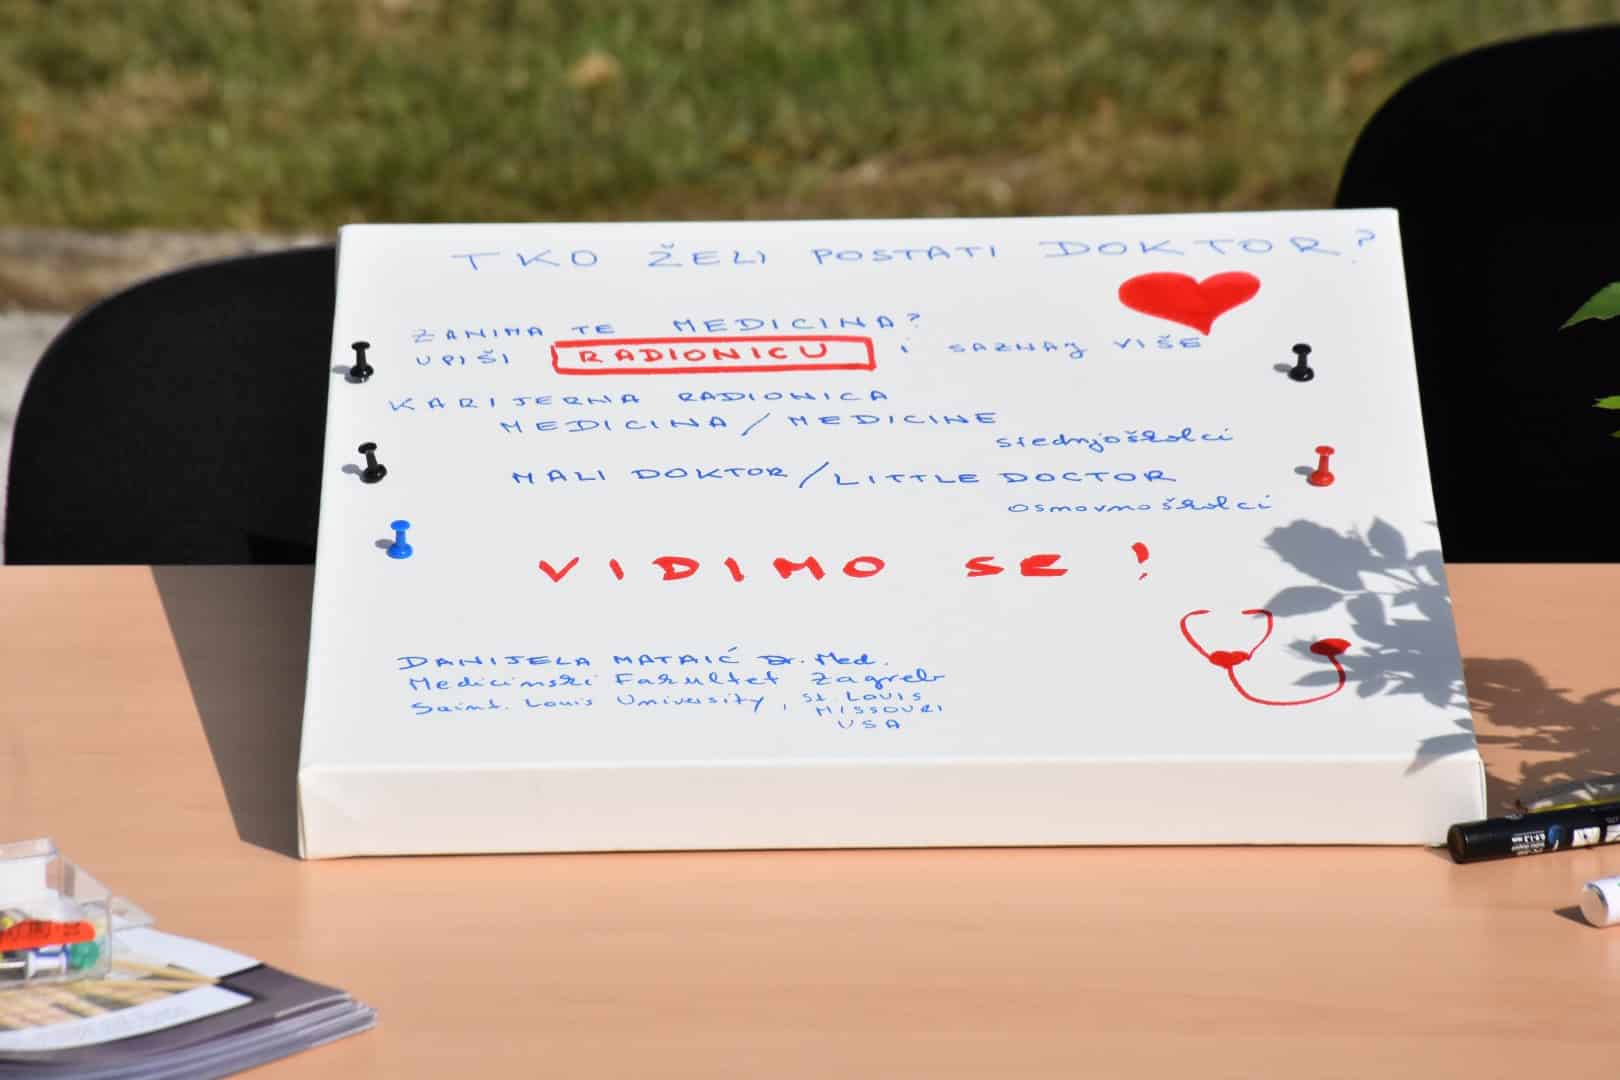 TKO ŽELI POSTATI DOKTOR?
ZANIMA TE MEDICINA?
UPIŠI RADIONICU i SAZNAJ VIŠE
KARIJERNA RADIONICA
MEDICINA/MEDICINE
srednjoškolci
MALI DOKTOR/LITTLE DOCTOR
osnovnoškolci
VIDIMO SE!
DANIJELA MATAIĆ Dr. Med.
Medicinski Fakultet Zagreb
Saint. Louis University, St. LOUIS
MISSOURI
USA